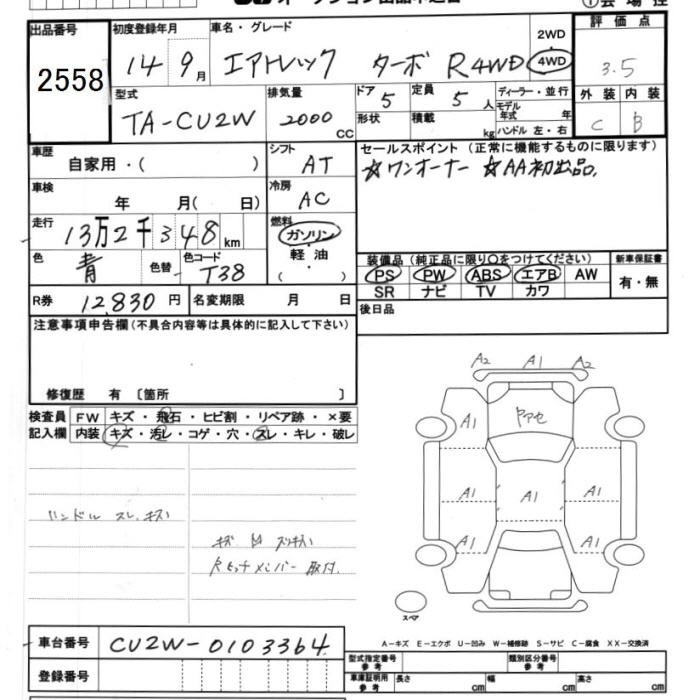 出品番号
2558
初度登録年月
車名・グレード
14 9月
エアトレック ターボ R4WD
2WD
4WD
評価点
3.5
型式
TA-CU2W
排気量
2000
CC
ドア
5
定員
5人
形状
積載
kg
ディーラー・並行
モデル年式 年
ハンドル 左・右
外装 内装
C B
車歴
自家用・( )
シフト
AT
セールスポイント (正常に機能するものに限ります)
☆ワンオーナー ☆AA初出品.
車検
年 月( 日)
冷房
AC
走行
13万2千348km
燃料
ガソリン
軽油
・
( )
色
青
色替
色コード
T38
装備品 (純正品に限り○をつけてください)
PS PW ABS エアB AW
SR ナビ TV カワ
新車保証書
有・無
R券
12,830円
名変期限 月 日
後日品
注意事項申告欄(不具合内容等は具体的に記入して下さい)
修復歴 有 〔箇所 〕
検査員記入欄
FW キズ・飛石・ヒビ割・リペア跡・×要
内装 キズ・汚レ・コゲ・穴・スレ・キレ・破レ
ハンドル スレ、キズ
取付.
A2 A1 A2
A1
A1 A1 A1
A1 A1
スペア
A－キズ E－エクボ U－凹み W－補修跡 S－サビ C－腐食 XX－交換済
車台番号
CU2W-0103364
登録番号
型式指定番号
参考
類別区分番号
参考
車庫証明用
参考
長さ cm 幅 cm 高さ cm